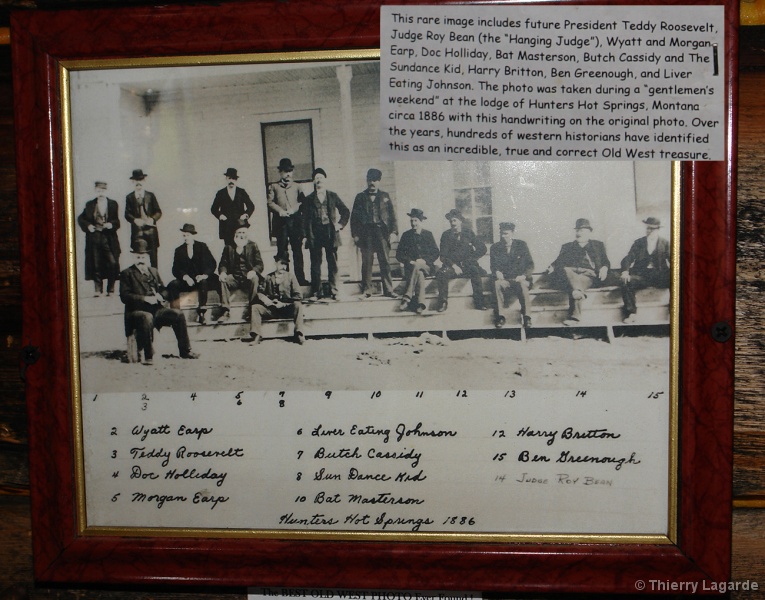 This rare image includes future President Teddy Roosevelt,
Judge Roy Bean (the "Hanging Judge"), Wyatt and Morgan
Earp, Doc Holliday, Bat Masterson, Butch Cassidy and The
Sundance Kid, Harry Britton, Ben Greenough, and Liver
Eating Johnson. The photo was taken during a "gentlemen's
weekend" at the lodge of Hunters Hot Springs, Montana
circa 1886 with this handwriting on the original photo. Over
the years, hundreds of western historians have identified
this as an incredible, true and correct Old West treasure.
1 2 4 5 7 9 10 11 12 13 14 15
3 6 8
2 Wyatt Earp
3 Teddy Roosevelt
4 Doc Holliday
5 Morgan Earp
6 Liver Eating Johnson
7 Butch Cassidy
8 Sun Dance Kid
10 Bat Masterson
12 Harry Britton
15 Ben Greenough
14 Judge Roy Bean
Hunters Hot Springs 1886
The BEST OLD WEST PHOTO Ever Found !
© Thierry Lagarde